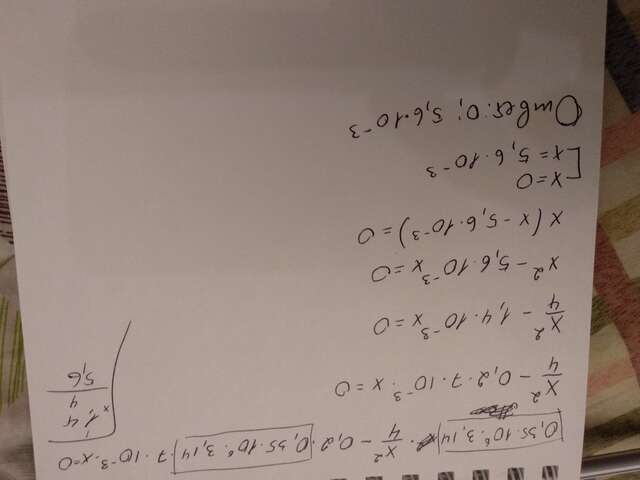 0,35·10⁶·3,14·x²/4 − 0,2·0,35·10⁶·3,14·7·10⁻³·x=0
x²/4 − 0,2·7·10⁻³·x=0
x²/4 − 1,4·10⁻³x=0
x² − 5,6·10⁻³x=0
x(x − 5,6·10⁻³)=0
[x=0
x=5,6·10⁻³
Ответ: 0; 5,6·10⁻³
x 1,4
4
5,6